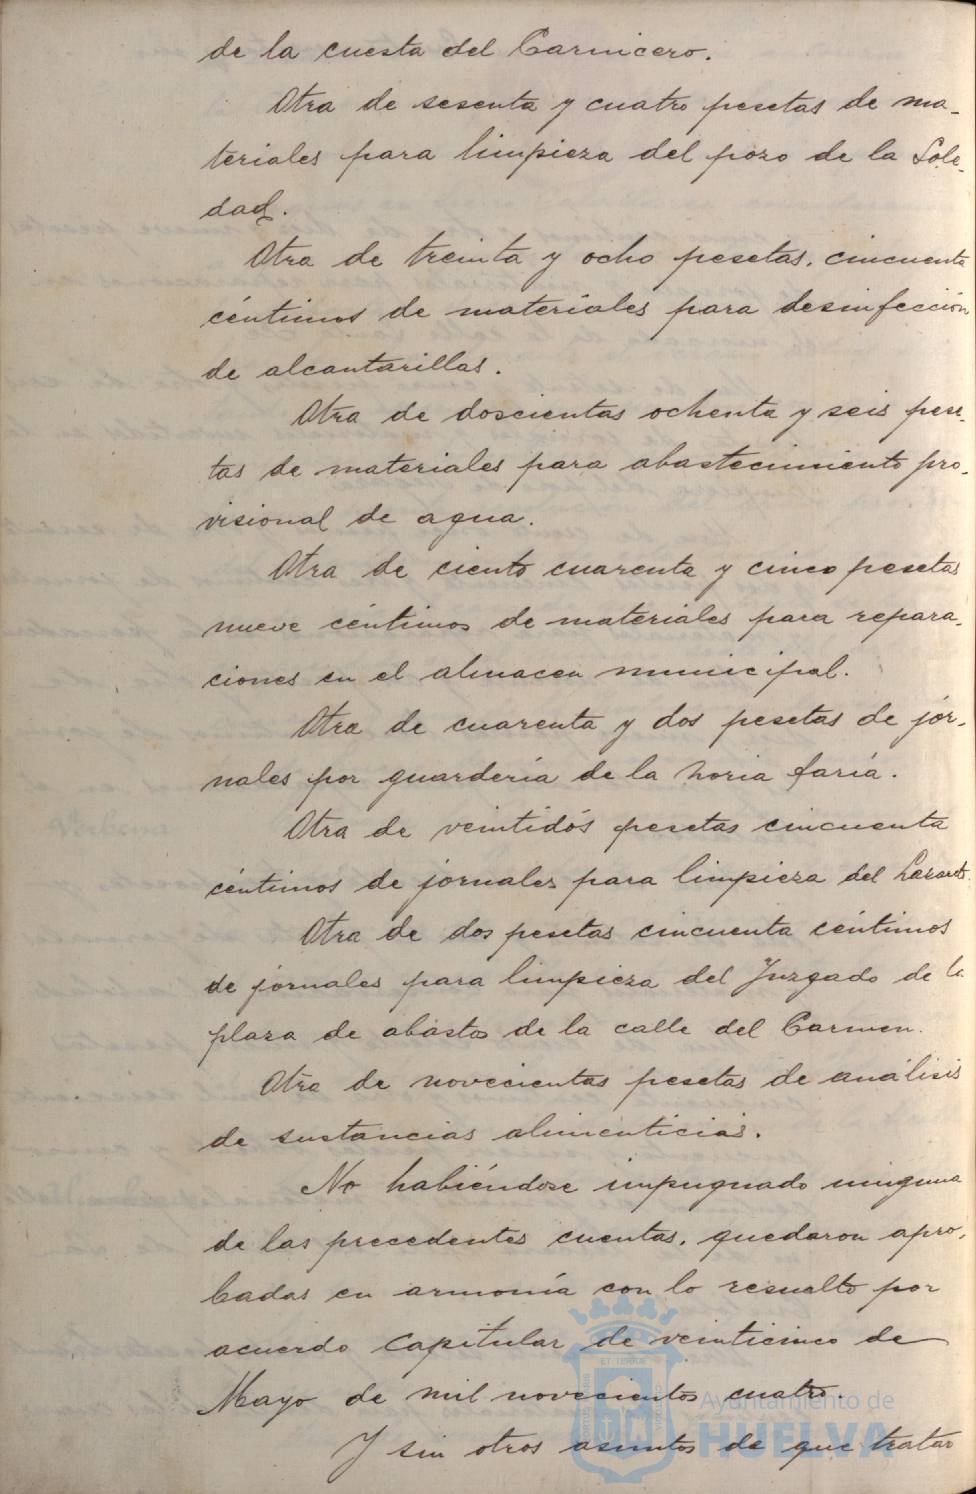 de la cuesta del Carnicero.
Otra de sesenta y cuatro pesetas de ma-
teriales para limpieza del pozo de la Sole-
dad.
Otra de treinta y ocho pesetas, cincuenta
céntimos de materiales para desinfección
de alcantarillas.
Otra de doscientas ochenta y seis pese-
tas de materiales para abastecimiento pro-
visional de agua.
Otra de ciento cuarenta y cinco pesetas
nueve céntimos de materiales para repara-
ciones en el almacen municipal.
Otra de cuarenta y dos pesetas de jor-
nales por guardería de la noria faria.
Otra de veintidós pesetas cincuenta
céntimos de jornales para limpieza del Lazareto.
Otra de dos pesetas cincuenta céntimos
de jornales para limpieza del Juzgado de la
plaza de abastos de la calle del Carmen.
Otra de novecientas pesetas de análisis
de sustancias alimenticias.
No habiéndose impugnado ninguna
de las precedentes cuentas, quedaron apro-
badas en armonía con lo resuelto por
acuerdo Capitular de veinticinco de
Mayo de mil novecientos cuatro.
Y sin otros asuntos de que tratar
Ayuntamiento de
HUELVA